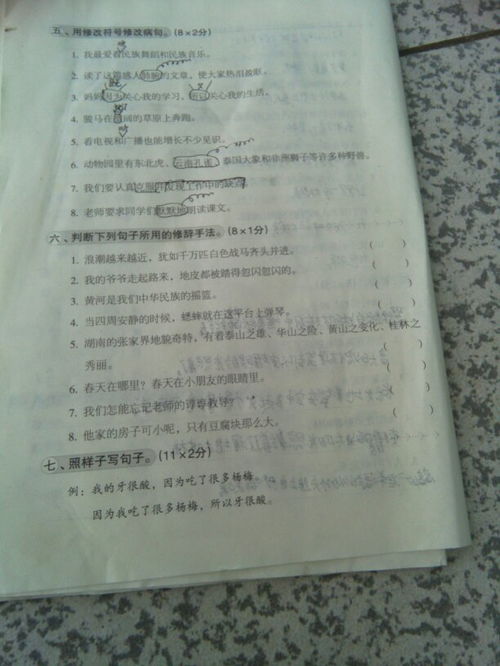 五、用修改符号修改病句。(8×2分)
1. 我最爱看民族舞蹈和民族音乐。
2. 读了这篇感人肺腑的文章，使大家热泪盈眶。
3. 妈妈因为关心我的学习，所以关心我的生活。
4. 骏马在的草原上奔跑。
5. 看电视和广播也能增长不少见识。
6. 动物园里有东北虎、云南孔雀、泰国大象和非洲狮子等许多种野兽。
7. 我们要认真克服并发现工作中的缺点。
8. 老师要求同学们默默地朗读课文。
六、判断下列句子所用的修辞手法。(8×1分)
1. 浪潮越来越近，犹如千万匹白色战马齐头并进。 ( )
2. 我的爷爷走起路来，地皮都被踏得忽闪忽闪的。 ( )
3. 黄河是我们中华民族的摇篮。 ( )
4. 当四周安静的时候，蟋蟀就在这平台上弹琴。 ( )
5. 湖南的张家界地貌奇特，有着泰山之雄、华山之险、黄山之变化、桂林之
秀丽。 ( )
6. 春天在哪里？春天在小朋友的眼睛里。 ( )
7. 我们怎能忘记老师的谆谆教导？ ( )
8. 他家的房子可小呢，只有豆腐块那么大。 ( )
七、照样子写句子。(11×2分)
例：我的牙很酸，因为吃了很多杨梅。
因为我吃了很多杨梅，所以牙很酸。